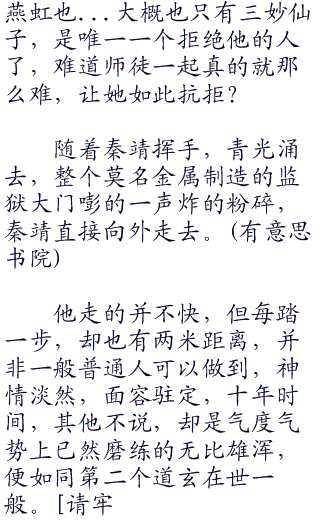 燕虹也...大概也只有三妙仙
子，是唯一一个拒绝他的人
了，难道师徒一起真的就那
么难，让她如此抗拒？
随着秦靖挥手，青光涌
去，整个莫名金属制造的监
狱大门嘭的一声炸的粉碎，
秦靖直接向外走去。(有意思
书院)
他走的并不快，但每踏
一步，却也有两米距离，并
非一般普通人可以做到，神
情淡然，面容驻定，十年时
间，其他不说，却是气度气
势上已然磨练的无比雄浑，
便如同第二个道玄在世一
般。[请牢